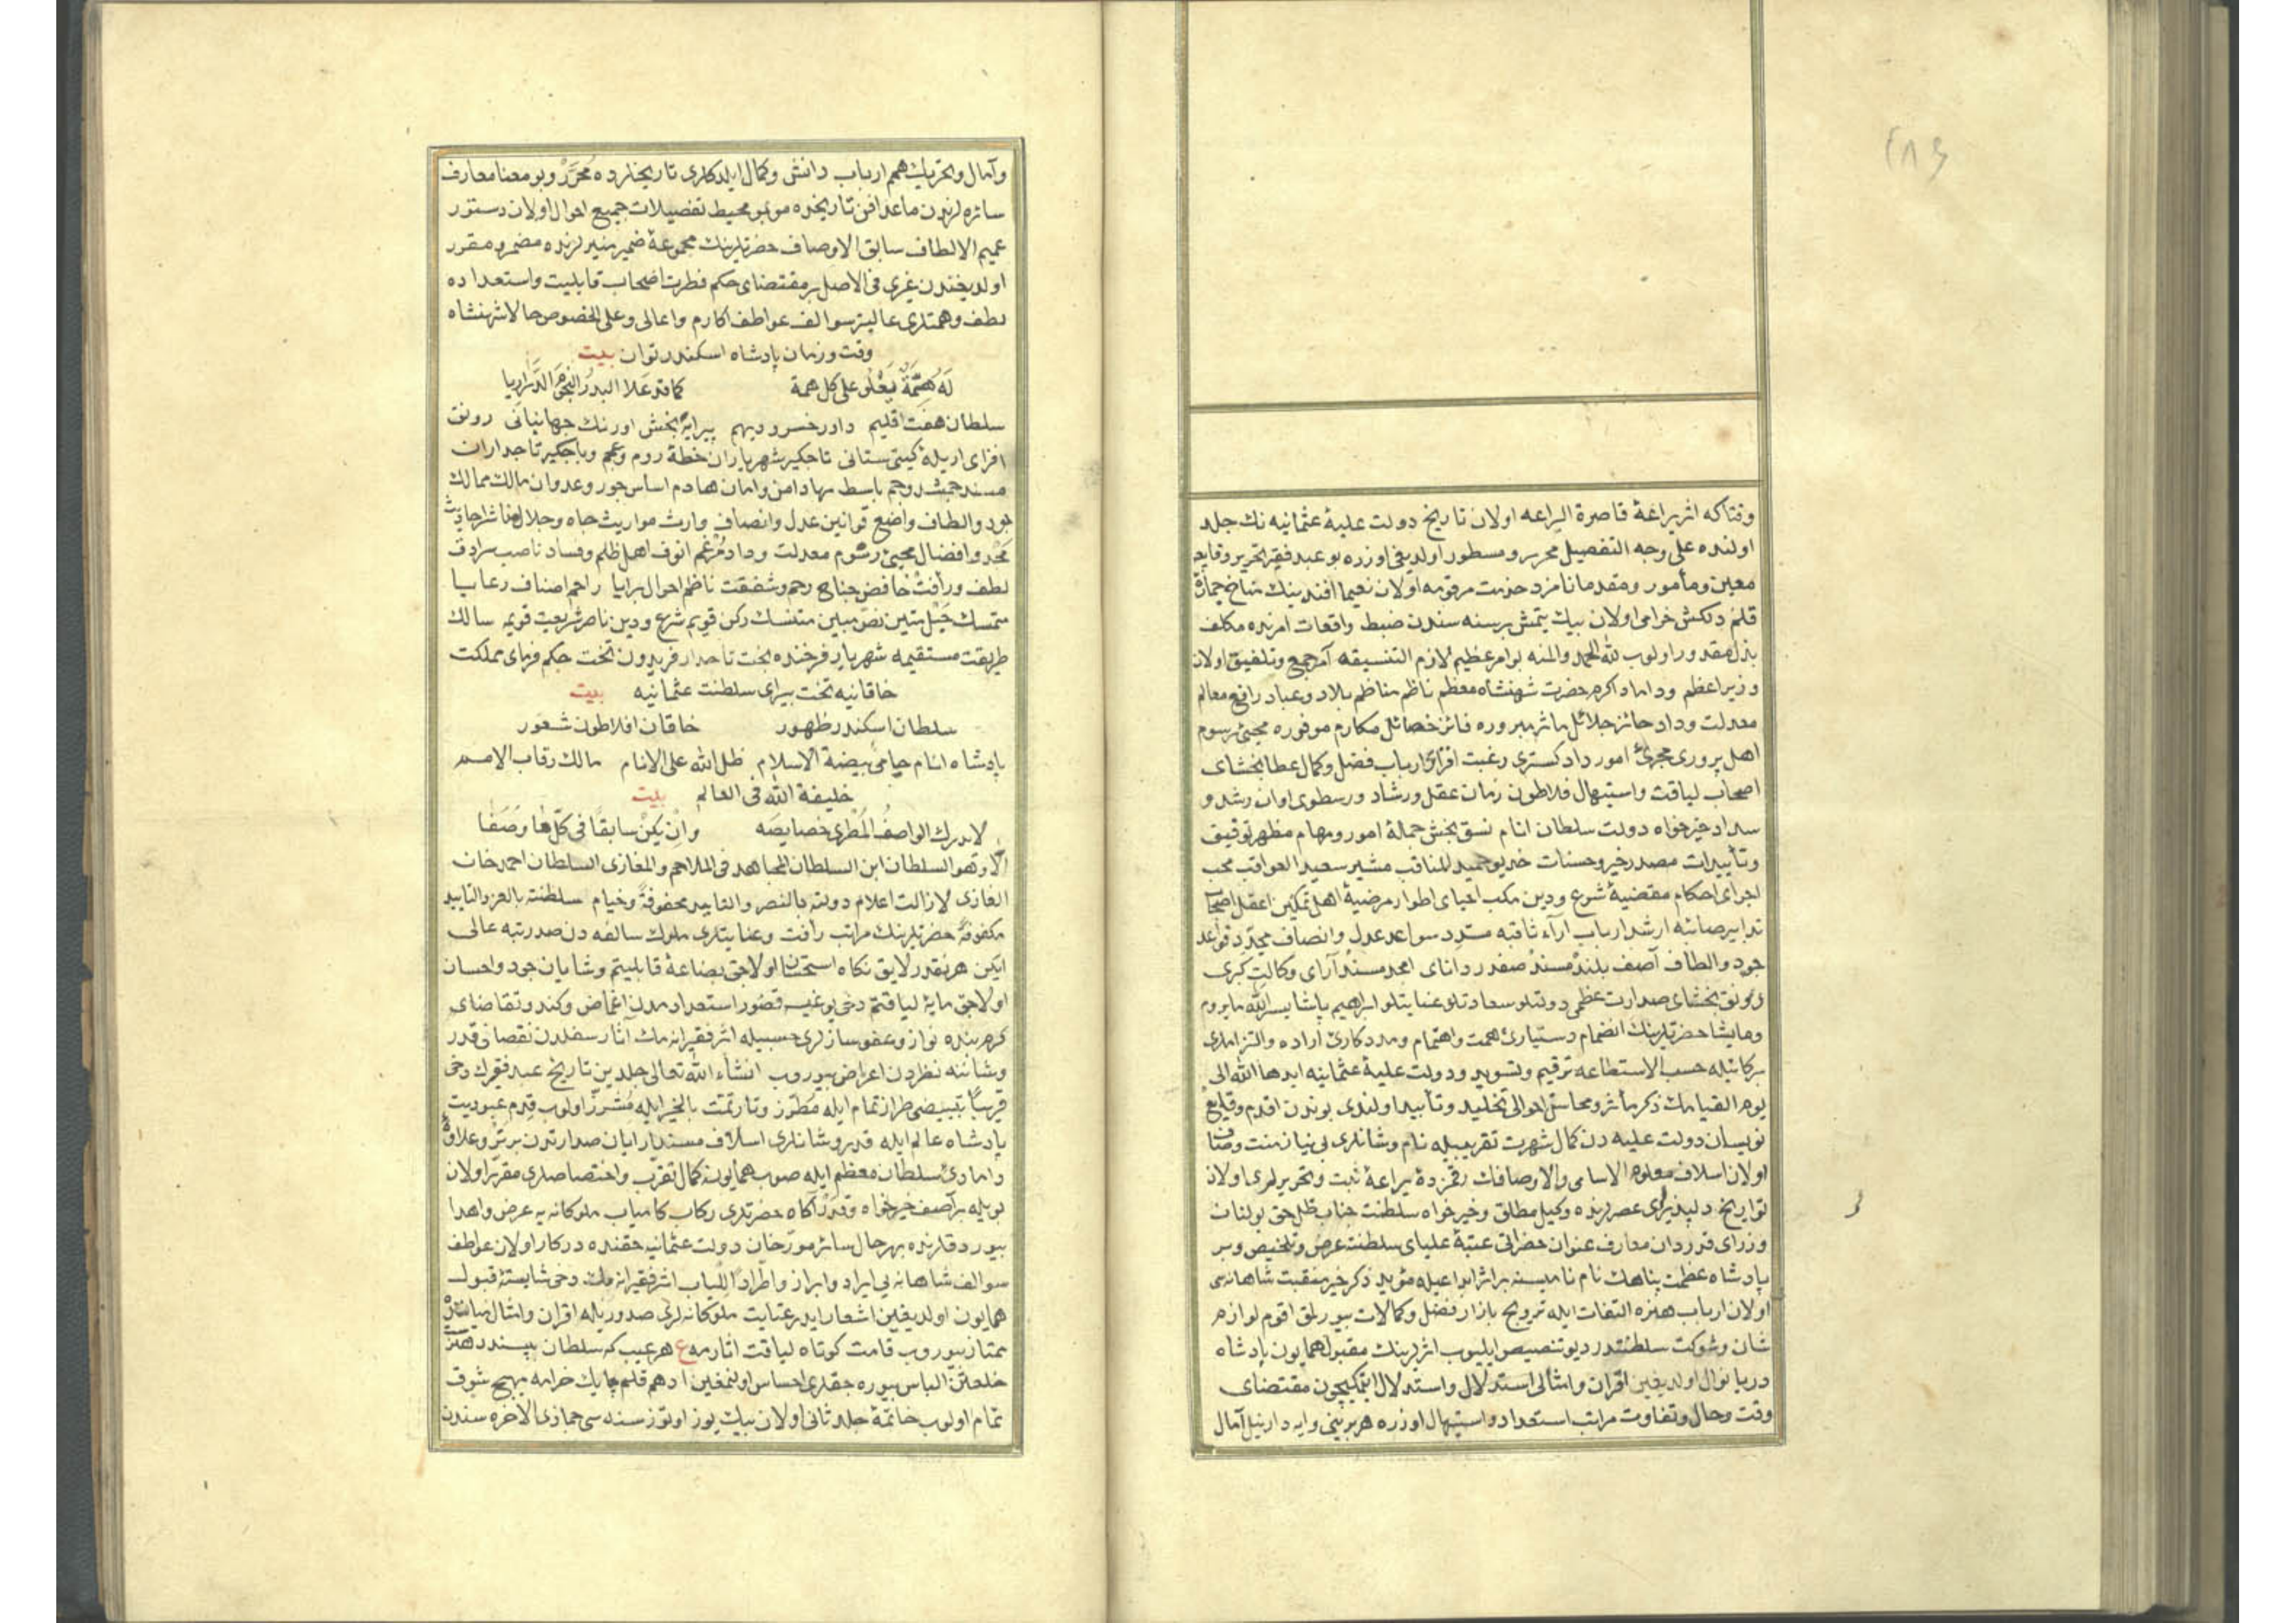 وقتاكه اثر يراعۀ قاصرة البراعه اولان تاريخ دولت عليۀ عثمانيه نك جلد
اولنده على وجه التفصيل محرر و مسطور اولديغى اوزره بو عبد فقير تحرير وقايعه
معين ومأمور ومقدما نامزد خدمت مرقومه اولان نعيما افندينك مناخ جمازۀ
قلم دلكش خرامى اولان بيك يتمش بر سنه سندن ضبط واقعات امرنده مكلف
بذل مقدور اولوب لله الحمد والمنه بو امر عظيم لازم التنسيقه آمر جمع وتلفيق اولان
وزير اعظم وداماد اكرم حضرت شهنشاه معظم ناظم مناظم بلاد وعباد رافع معالم
معدلت وداد حائز جلائل مآثر مبروره فائز خصائل مكارم موفوره محيئ رسوم
اهل پرورى مجرئ امور داد كسترى رغبت افزاى ارباب فضل وكمال عطا بخشاى
اصحاب لياقت واستيهال فلاطون زمان عقل ورشاد ورسطوى اوان رشد و
سداد خير خواه دولت سلطان انام نسق بخش جملۀ امور ومهام مظهر توفيق
وتأييدات مصدر خير وحسنات خديو حميد المناقب مشير سعيد العواقب محب
اجراى احكام مقتضيۀ شرع ودين مكب احياى اطوار مرضيۀ اهل تمكين اعقل اصحاب
تدابير صائبه ارشد ارباب آراء ثاقبه مسدد سواعد عدل وانصاف مجدد قواعد
جود والطاف آصف بلند مسند صفدر داناى امجد مسند آراى وكالت كبرى
رونق بخشاى صدارت عظمى دولتلو سعادتلو عنايتلو ابراهيم پاشا يسر الله ما يروم
وما يشا حضرتلرينك انضمام دستيارئ همت واهتمام ومددكارئ اراده والتزاملرى
بركاتيله حسب الاستطاعه ترقيم وتسويد ودولت عليۀ عثمانيه ابدها الله الى
يوم القيامك ذكر مآثر ومحاسن احوالى تخليد وتأبيد اولندى بوندن اقدم وقايع
نويسان دولت عليه دن كمال شهرت تقريبيله نام وشانلرى بى نياز منت وصاف
اولان اسلاف معلوم الاسامى والاوصافك رقمزدۀ يراعۀ ثبت وتحريرلرى اولان
تواريخ دلپذيراى عصرلرنده وكيل مطلق وخير خواه سلطنت جناب ظل حق بولنان
وزراى قدردان معارف عنوان حضراتى عتبۀ علياى سلطنته عرض وتلخيص وبر
پادشاه عظمت پناهك نام ناميسنه بر اثر ابداعيله مؤبد ذكر خير منقبت شاهانه سى
اولان ارباب هنره التفات ايله ترويج بازار فضل وكمالات بيورملق اقوم لوازم
شان وشوكت سلطنتدر ديو تنصيص ايليوب اثرلرينك مقبول همايون پادشاه
دريا نوال اولديغين اقران وامثالى استدلال واستدلال ايتمكيچون مقتضاى
وقت وحال وتفاوت مراتب استعداد واستيهال اوزره هر برينى وايه دار نيل آمال
وآمال وتحريك همم ارباب دانش وكمال ايلدكلرى تاريخلرده محرر وبو معنا معارف
سائره لرندن ماعدا فن تاريخده موبمو محيط تفصيلات جميع احوال اولان دستور
عميم الالطاف سابق الاوصاف حضرتلرينك مجموعۀ ضمير منيرلرنده مضمر ومقرر
اولديغندن غيرى فى الاصل بر مقتضاى حكم فطرت اصحاب قابليت واستعداده
لطف وهمتلرى عاليتر سوالف عواطف اكارم واعالى وعلى الخصوص حالا شهنشاه
وقت وزمان پادشاه اسكندر توان بيت
لَهُ هِمَّةٌ يَعْلُو على كل همة كما قد علا البدر النجوم الدراريا
سلطان هفت اقليم داور خسرو ديهيم پيرايه بخش اورنك جهانبانى رونق
افزاى اريكۀ كيتى ستانى تاجكير شهرياران خطۀ روم وعجم وباجكير تاجداران
مسند جمشيد وجم باسط مهاد امن وامان هادم اساس جور وعدوان مالك ممالك
جود والطاف واضع قوانين عدل وانصاف وارث مواريث جاه وجلال
مجد وافضال محيئ رسوم معدلت وداد مرغم انوف اهل ظلم وفساد ناصب سرادق
لطف ورأفت خافض جناح رحم وشفقت ناظم احوال برايا راحم اصناف رعايا
متمسك حبل متين نص مبين متنسك ركن قويم شرع ودين ناصر شريعت قويمه سالك
طريقت مستقيمه شهريار فرخنده بخت تاجدار فريدون تخت حكم فرماى مملكت
خاقانيه تخت پيراى سلطنت عثمانيه بيت
سلطان اسكندر ظهور خاقان افلاطون شعور
پادشاه انام حامئ بيضة الاسلام ظل الله على الانام مالك رقاب الامم
خليفة الله فى العالم بيت
لا يدرك الواصف المطرى خصايصه وان يكن سابقا فى كل ما وصفا
الا وهو السلطان ابن السلطان المجاهد فى الملاحم والمغازى السلطان احمد خان
الغازى لا زالت اعلام دولته بالنصر والتاييد محفوفة وخيام سلطنته بالعز والتابيد
مكفوفة حضرتلرينك مراتب رأفت وعنايتلرى ملوك سالفه دن صد رتبه عالى
ايكن هر نقدر لايق نكاه استحسان اولاجق بضاعۀ قابليتم وشايان جود واحسان
اولاجق مايۀ لياقتم دخى يوغيسه قصور استعدادمدن اغماض وكندو تقاضاى
كرم بنده نواز وعفو سازلرى حسبيله اثر فقيرانه مك آثار سلفدن نقصانى قدر
وشاننه نظردن اعراض بيوروب انشاء الله تعالى جلدين تاريخ عبد فقيرك دخى
قريبا تبييضى طراز تمام ايله مطرز وتارتمت بالخير ايله مشرز اولوب قدم عبوديت
پادشاه عالم ايله قدر وشانلرى اسلاف مسند آرايان صدارتدن برتر وعلاقۀ
دامادئ سلطان معظم ايله صوب همايونه كمال تقرب واختصاصلرى مقرر اولان
بويله بر آصف خير خواه وقدر آكاه حضرتلرى ركاب كامياب ملوكانه يه عرض واهدا
بيوردقلرنده بهرحال سائر مورخان دولت عثمانيه حقنده دركار اولان عواطف
سوالف شاهانه يى ايراد وابراز واطرادا للباب اثر فقيرانه مك دخى شايستۀ قبول
همايون اولديغين اشعار ايدر عنايت ملوكانه لرى صدوريله اقران وامثال
ممتاز بيوروب قامت كوتاه لياقت آثارمه ع هر عيب كه سلطان بپسندد هنرست
خلعتن الباس بيوره جقلرى احساس اولنمغين ادهم قلم چابك خرامه مهيج شوق
تمام اولوب خاتمۀ جلد ثانى اولان بيك يوز اوتوز سنه سى جماذى الآخره سندن